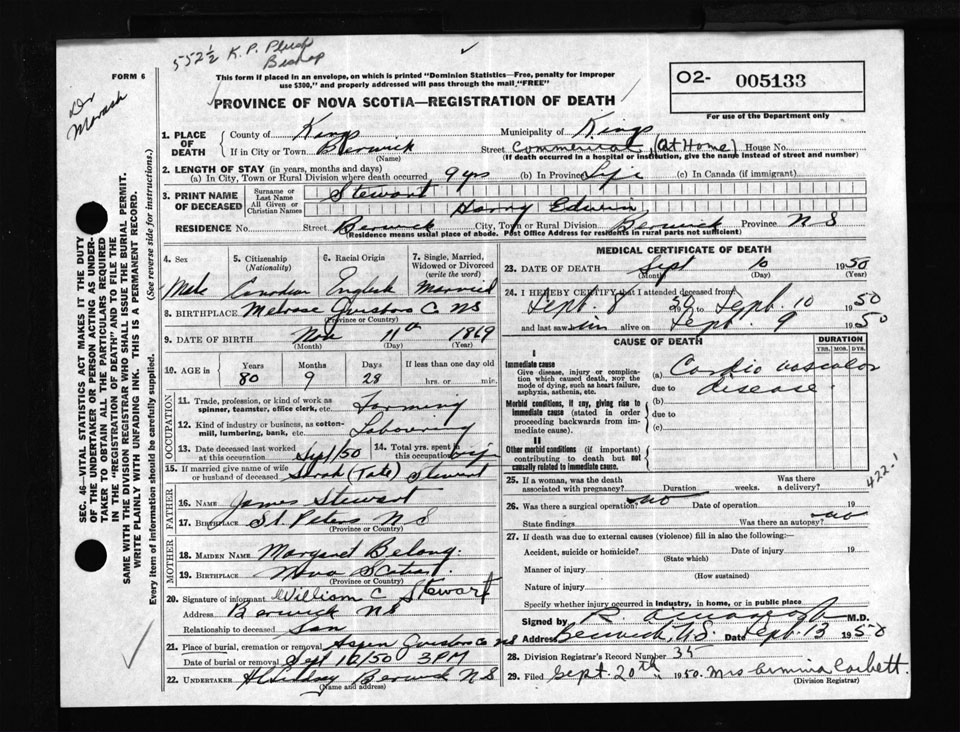 552½ K. P. Plush
Bishop
Dr
Marash
FORM 6
This form if placed in an envelope, on which is printed "Dominion Statistics—Free, penalty for improper
use $300," and properly addressed will pass through the mail "FREE"
PROVINCE OF NOVA SCOTIA—REGISTRATION OF DEATH
O2- 005133
For use of the Department only
SEC. 46—VITAL STATISTICS ACT MAKES IT THE DUTY
OF THE UNDERTAKER OR PERSON ACTING AS UNDER-
TAKER TO OBTAIN ALL THE PARTICULARS REQUIRED
IN THE "REGISTRATION OF DEATH" AND TO FILE THE
SAME WITH THE DIVISION REGISTRAR WHO SHALL ISSUE THE BURIAL PERMIT.
WRITE PLAINLY WITH UNFADING INK. THIS IS A PERMANENT RECORD.
Every item of information should be carefully supplied. (See reverse side for instructions.)
1. PLACE OF DEATH County of Kings Municipality of Kings
If in City or Town Berwick (Name) Street Commerical (At Home) House No.
(If death occurred in a hospital or institution, give the name instead of street and number)
2. LENGTH OF STAY (in years, months and days)
(a) In City, Town or Rural Division where death occurred 9 yrs (b) In Province Life (c) In Canada (if immigrant)
3. PRINT NAME OF DECEASED Surname or Last Name Stewart
All Given or Christian Names Harry Edwin
RESIDENCE No. Street Berwick City, Town or Rural Division Berwick Province N S
(Residence means usual place of abode. Post Office Address for residents in rural parts not sufficient)
4. Sex 5. Citizenship (Nationality) 6. Racial Origin 7. Single, Married, Widowed or Divorced (write the word)
Male Canadian English Married
8. BIRTHPLACE Melrose Guysboro Co NS
(Province or Country)
9. DATE OF BIRTH Nov 11th 1869
(Month) (Day) (Year)
10. AGE in Years Months Days If less than one day old
80 9 28 hrs. or min.
OCCUPATION
11. Trade, profession, or kind of work as spinner, teamster, office clerk, etc. Farming
12. Kind of industry or business, as cotton-mill, lumbering, bank, etc. Labouring
13. Date deceased last worked at this occupation Sept/50 14. Total yrs. spent in this occupation
15. If married give name of wife or husband of deceased Sarah (Tate) Stewart
FATHER
16. Name James Stewart
17. Birthplace St. Peters N S
(Province or Country)
MOTHER
18. Maiden Name Margaret Belong
19. Birthplace Nova Scotia
(Province or Country)
20. Signature of informant William C Stewart
Address Berwick N S
Relationship to deceased Son
21. Place of burial, cremation or removal Aspen Guysboro Co NS
Date of burial or removal Sept 12/50 3 PM
22. UNDERTAKER Berwick N S
(Name and address)
MEDICAL CERTIFICATE OF DEATH
23. DATE OF DEATH Sept 10 1950
(Month) (Day) (Year)
24. I HEREBY CERTIFY that I attended deceased from
Sept. 8 50 to Sept. 10 1950
and last saw him alive on Sept. 9 1950
CAUSE OF DEATH DURATION
YRS. MOS. DYS.
I
Immediate cause
Give disease, injury or complication which caused death, NOT the mode of dying, such as heart failure, asphyxia, asthenia, etc.
(a) Cardio vascular
due to disease
Morbid conditions, if any, giving rise to immediate cause (stated in order proceeding backwards from immediate cause).
(b)
due to
(c)
II
Other morbid conditions (if important) contributing to death but not causally related to immediate cause.
422-1
25. If a woman, was the death associated with pregnancy? Duration weeks. Was there a delivery?
26. Was there a surgical operation? no Date of operation 19
State findings Was there an autopsy? no
27. If death was due to external causes (violence) fill in also the following:—
Accident, suicide or homicide? Date of injury 19
(State which)
Manner of injury
(How sustained)
Nature of injury
Specify whether injury occurred in industry, in home, or in public place
Signed by M.D.
Address Berwick, N.S. Date Sept. 13 1950
28. Division Registrar's Record Number 35
29. Filed Sept. 20th 1950. Mrs Ermina Corbett.
(Division Registrar)